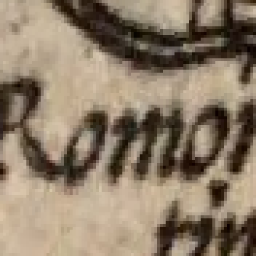 Romor
rin